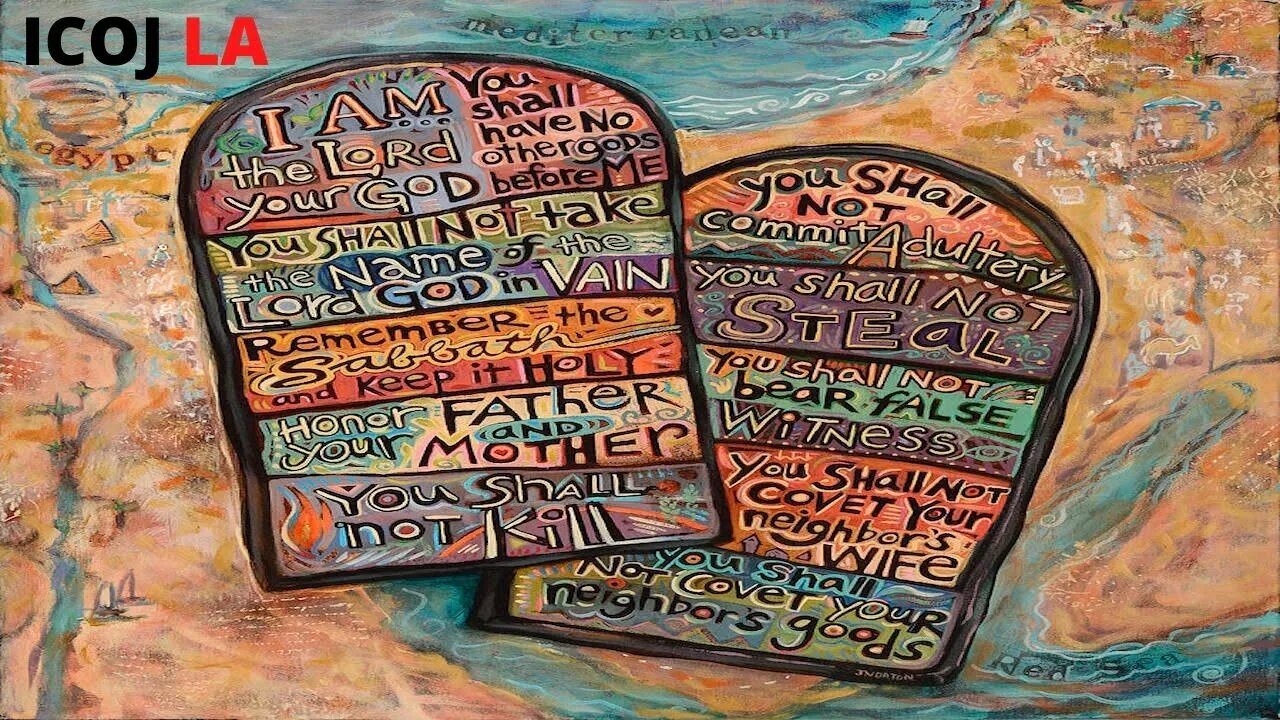 ICOJ LA
mediterranean
egypt
I AM...
the LORD
your GOD
You
shall
have NO
other gods
before ME
You SHALL Not take
the Name of the
Lord GOD in VAIN
Remember the
Sabbath
and keep it HOLY
Honor FATher
your AND
MOTHER
You Shall
noT Kill
you SHall
NOT
commit Adultery
you shall NOT
STEAL
you shall NOT
beAR fALSE
WiTNESS
You SHall NOT
COVET Your
neighbor's
WIFE
you Shall
Not Cover your
neighbor's goods
JNORTON
Red Sea